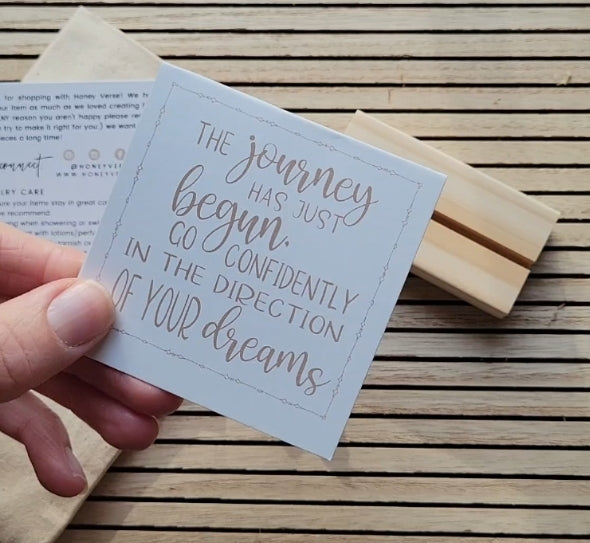 for shopping with Honey Verse! We
item as much as we loved creating
reason you aren't happy please
try to make it right for you:) we want
a long time!
connect
CARE
your items stay in great
recommend:
when showering or
with lotions/
THE journey
HAS JUST
begun.
GO CONFIDENTLY
IN THE DIRECTION
OF YOUR dreams